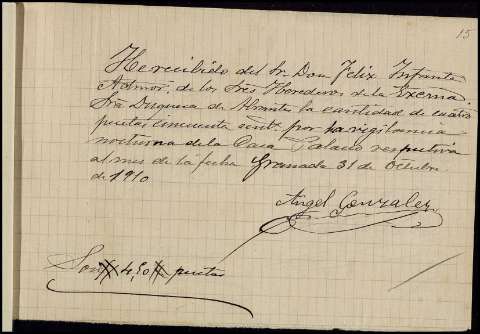 15
He recibido del Sr. Don Felix Infante
Admor. de los Sres Herederos de la Excma.
Sra Duquesa de Abrante la cantidad de cuatro
pesetas cincuenta cents. por la vigilancia
nocturna de la Casa Palacio respectiva
al mes de la fecha Granada 31 de Octubre
de 1910
Angel Gonzalez
Son 4,50 pesetas